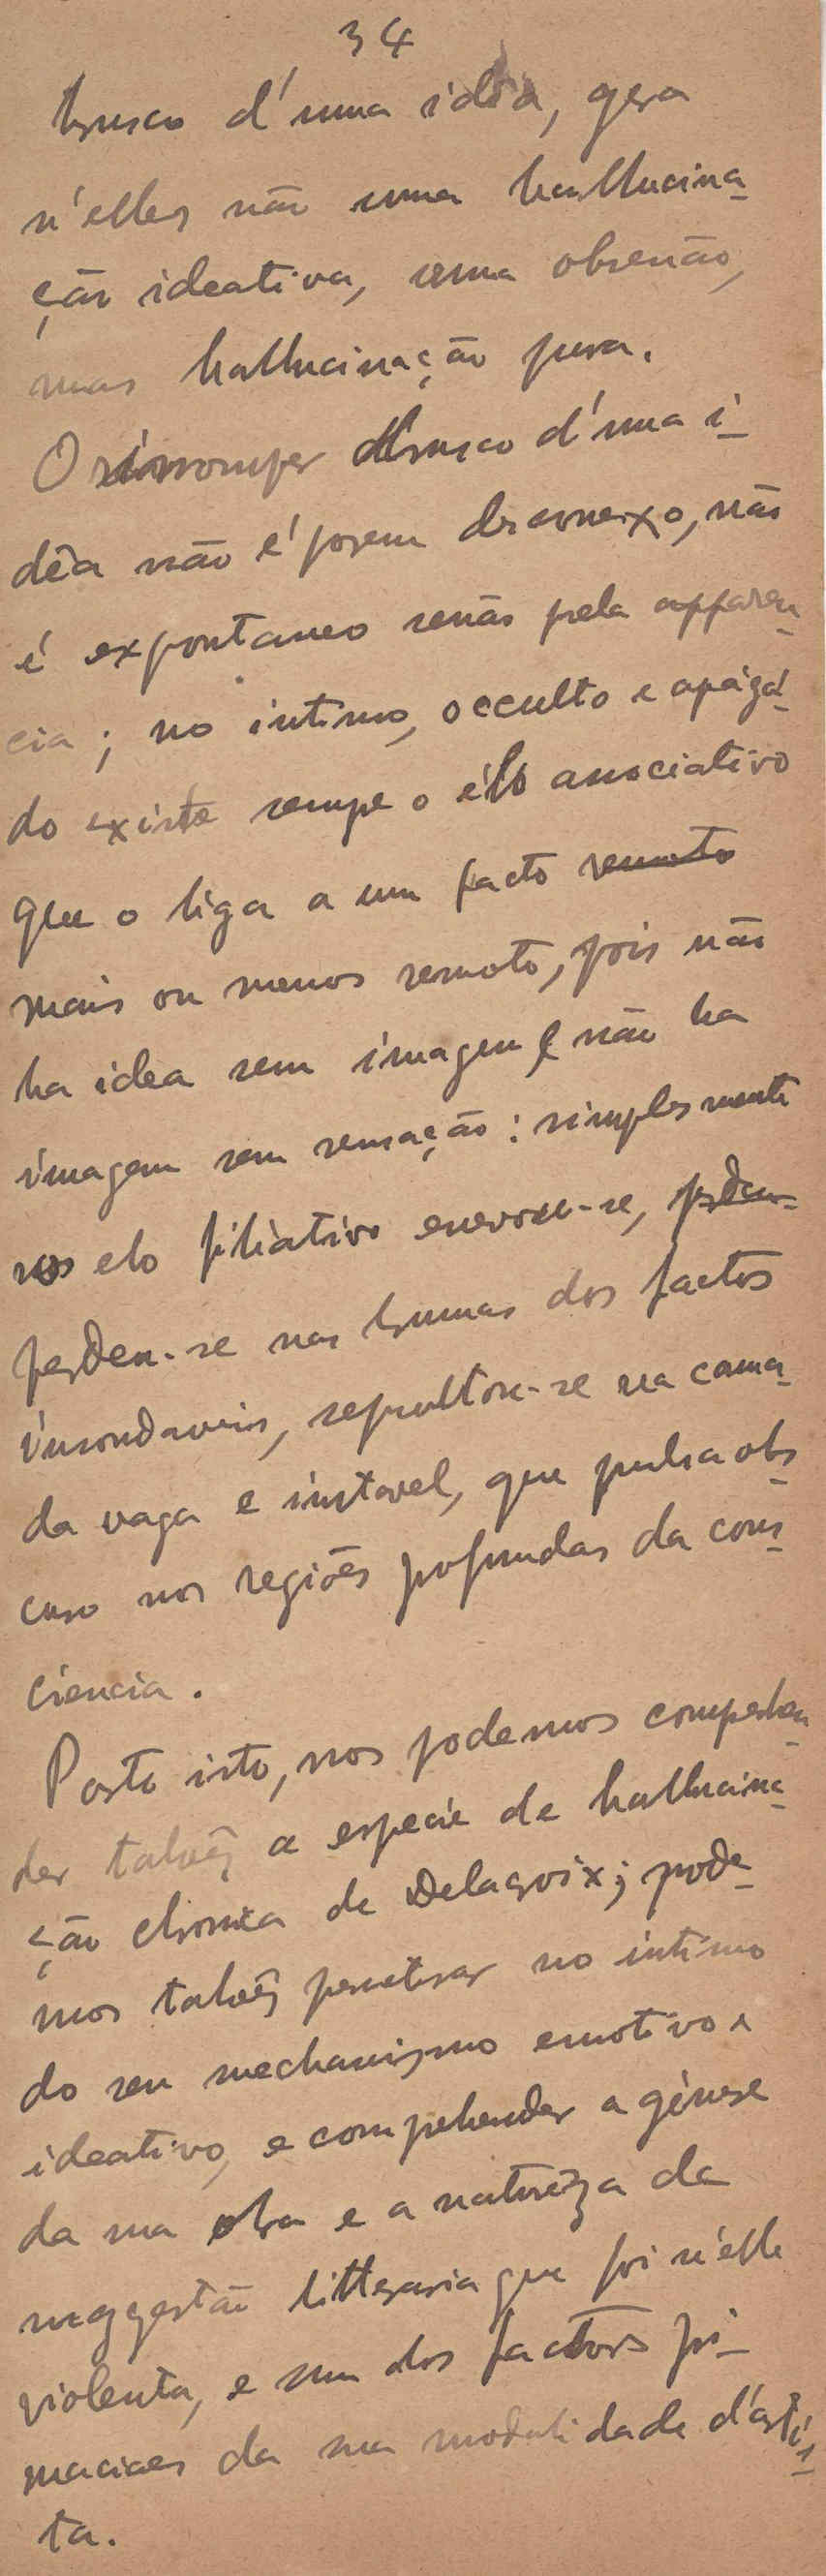 34
brusco d'uma idéa, gera
n'elles não uma hallucina-
ção ideativa, uma obsessão,
mas hallucinação pura.
O irromper brusco d'uma i-
dêa não é porem desconexo, não
é expontaneo senão pela apparen-
cia; no intimo, occulto e apaga-
do existe sempre o élo associativo
que o liga a um facto remoto
mais ou menos remoto, pois não
ha idea sem imagem e não ha
imagem sem sensação: simplesmente
o elo filiativo enevoou-se, perdeu-
perdeu-se nas brumas dos factos
insondaveis, sepultou-se na cama-
da vaga e instavel, que pulsa obs-
curo nas regiões profundas da cons-
ciencia.
Posto isto, nos podemos comprehen-
der talvêz a especie de hallucina-
ção chronica de Delacroix; pode-
mos talvêz penetrar no intimo
do seu mechanismo emotivo e
ideativo, e comprehender a génese
da sua obra e a naturêza da
suggestão litteraria que foi n'elle
violenta, e um dos factores pri-
maciaes da sua modalidade d'artis-
ta.